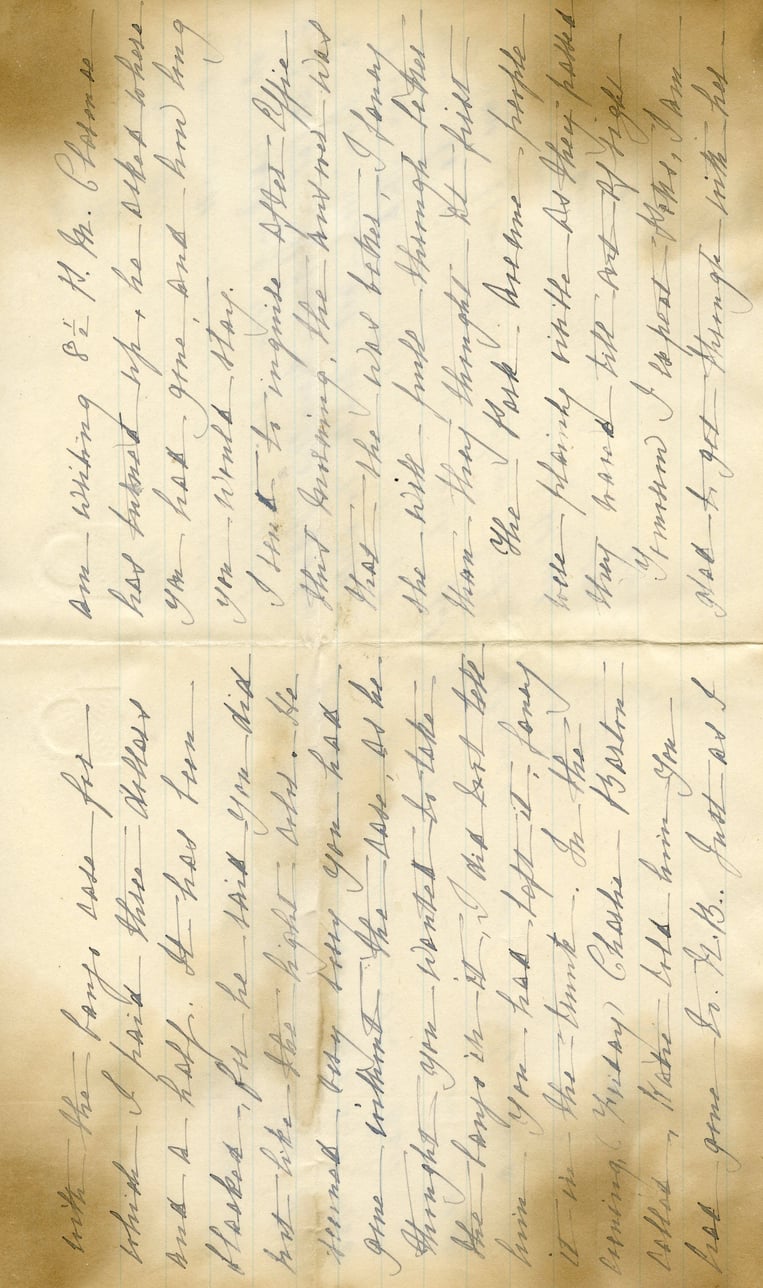 with the banjo case for
which I paid three dollars
and a half. It has been
blacked, for he said you did
not like the light color. He
seemed very sorry you had
gone without the case, as he
thought you wanted to take
the banjo in it, I did not tell
him you had left it, fancy
it in the trunk. In the
evening, (Friday) Charlie Barton
called, Katie told him you
had gone to N.B.. Just as I
am writing 8½ P. M. Clarence
has turned up, he asked where
you had gone, and how long
you would stay.
I sent to inquire after Effie
this morning, the answer was
that she was better, I fancy
she will pull through better
than they thought at first
The Park Avenue people
were plainly visible as they passed
they waved till out of sight
Tomorrow I expect I am
glad to get through with her